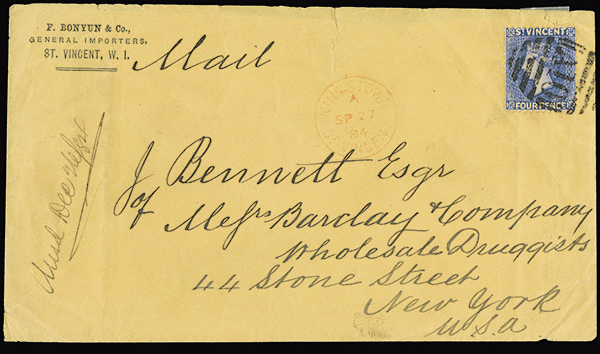 F. BONYUN & Co.,
GENERAL IMPORTERS,
ST. VINCENT, W. I.
Mail
ST VINCENT
FOUR PENCE
KINGSTOWN
A
SP 27
84
ST VINCENT
J. Bennett Esqr
of Messrs Barclay & Company
Wholesale Druggists
44 Stone Street
New York
U.S.a.